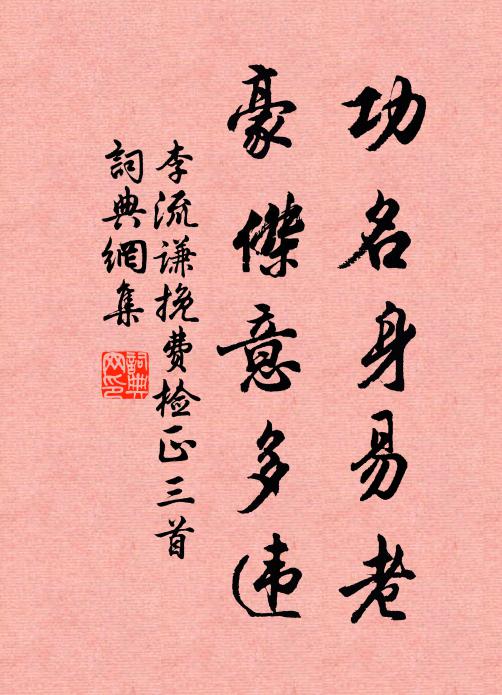 功名身易老
豪傑意多违
李流谦挽费检正三首
詞典網集
詞典网印